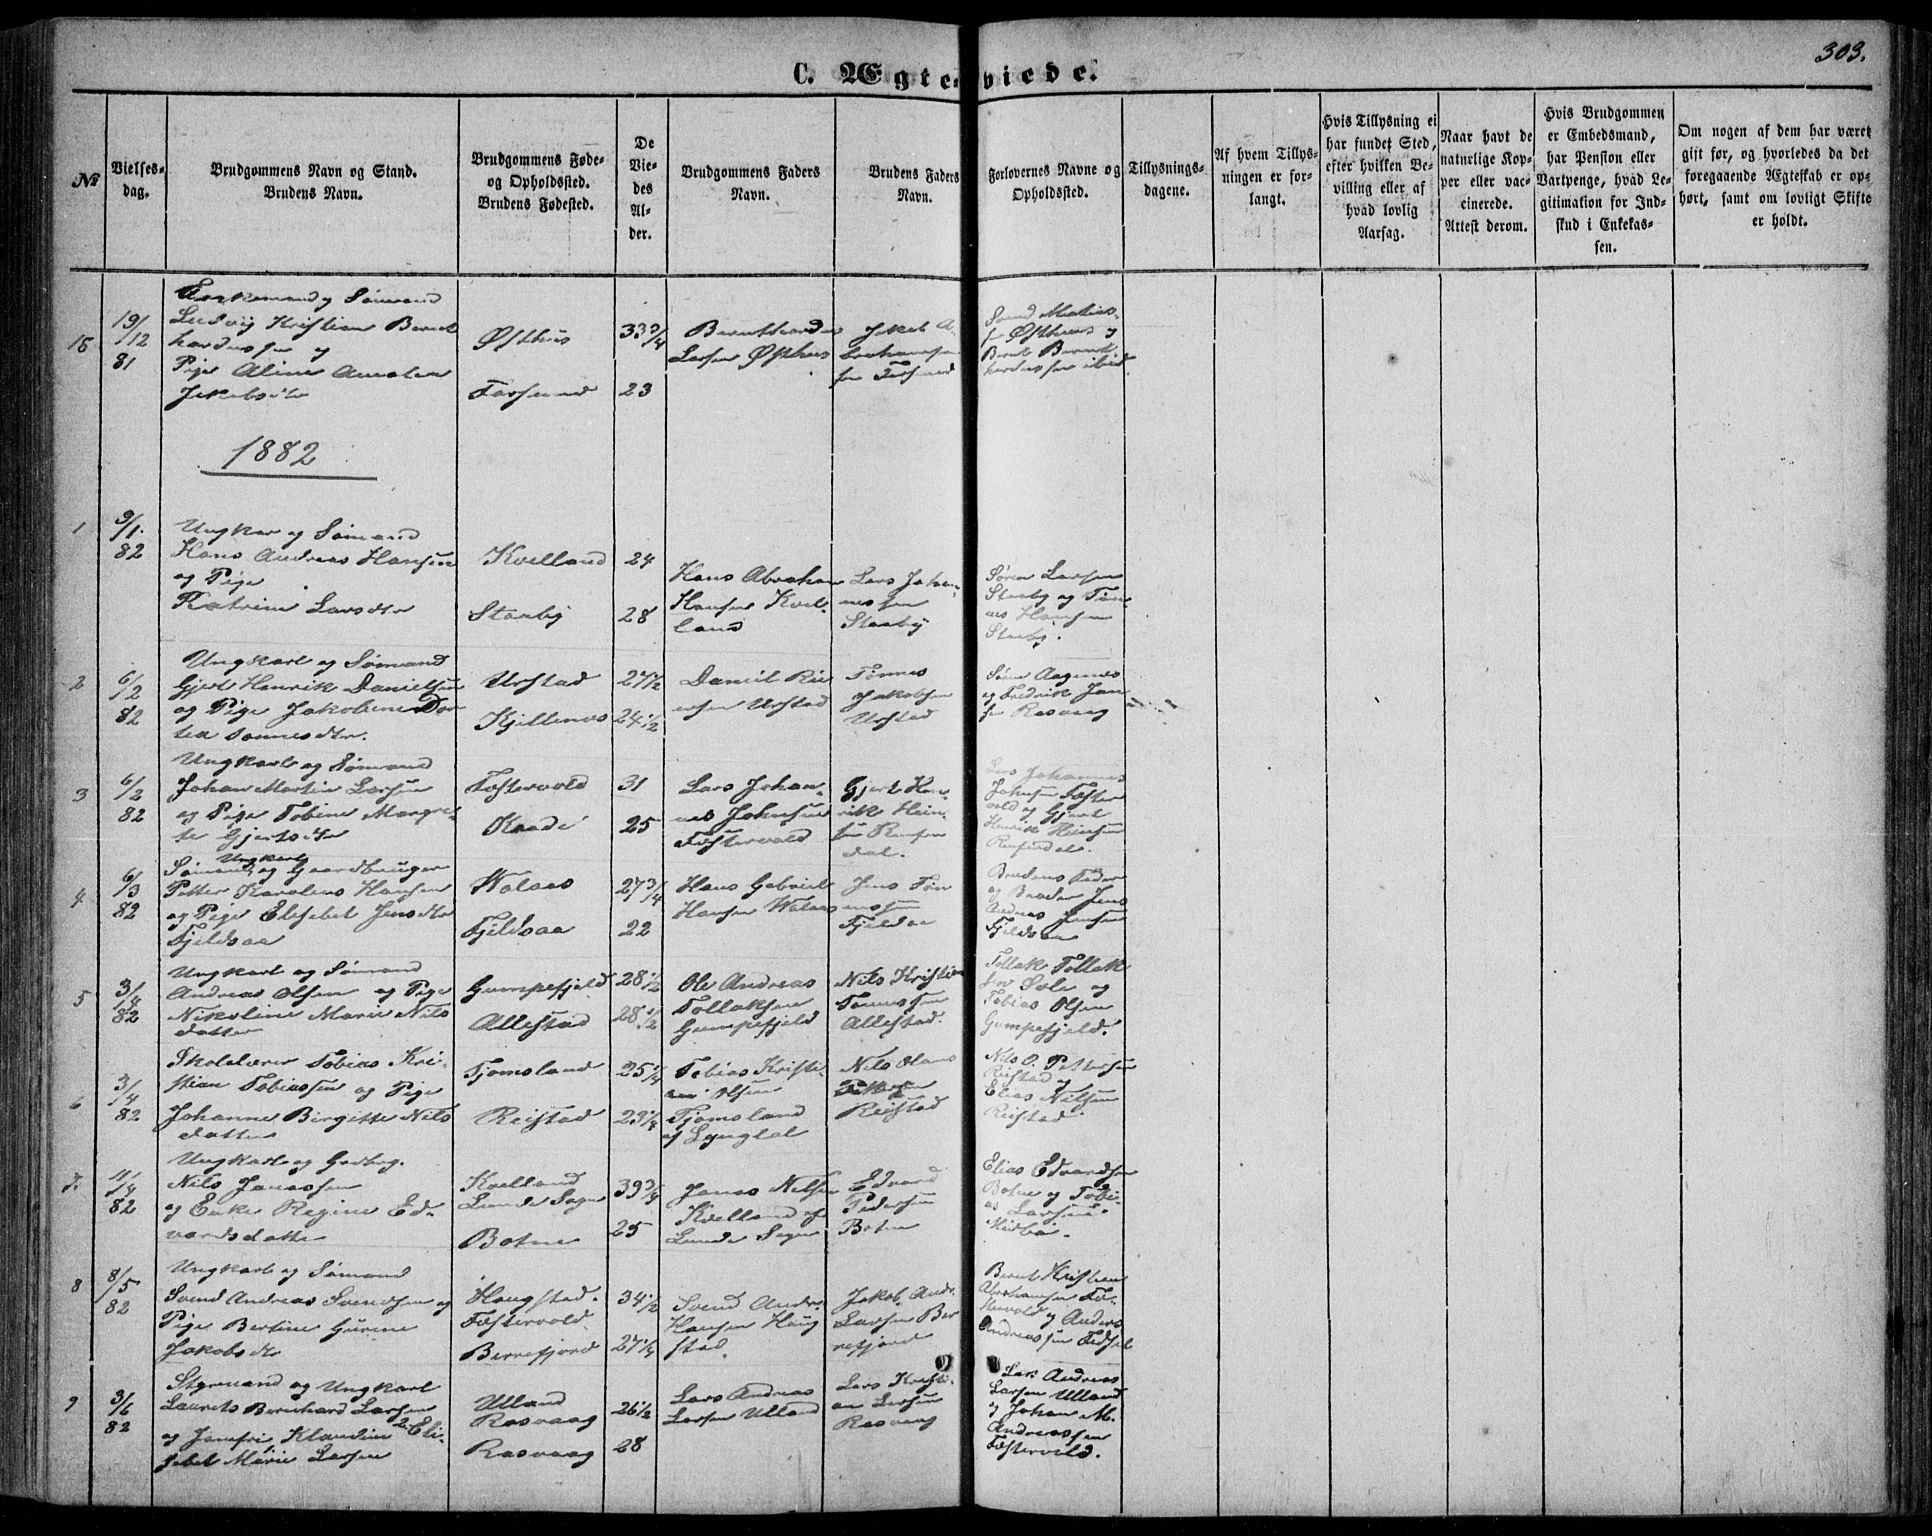 303.
C. Ægteviede.
No
Vielses-
dag.
Brudgommens Navn og Stand.
Brudens Navn.
Brudgommens Føde-
og Opholdssted.
Brudens Fødested.
De
Vie-
des
Al-
der.
Brudgommens Faders
Navn.
Brudens Faders
Navn.
Forlovernes Navne og
Opholdssted.
Tillysnings-
dagene.
Af hvem Tillys-
ningen er for-
langt.
Hvis Tillysning ei
har fundet Sted,
efter hvilken Be-
villing eller af
hvad lovlig
Aarsag.
Naar havt de
naturlige Kop-
per eller vac-
cinerede.
Attest derom.
Hvis Brudgommen
er Embedsmand,
har Pension eller
Vartpenge, hvad Le-
gitimation for Ind-
skud i Enkekas-
sen.
Om nogen af dem har været
gift før, og hvorledes da det
foregaaende Ægteskab er op-
hørt, samt om lovligt Skifte
er holdt.
15
19/12
81
Enkemand og Sømand
Ludvig Kristian Bernt
hardussen og
Pige Aline Amalia
Jakobsdtr
Østhus
Farsund
33 3/4
23
Bernthardus
Larsen Østhus
Jakob A-
brahamsen
Farsund
Svend Mathias-
sen Østhus og
Bernt Bernt
hardussen ibid
1882
1
9/1.
82
Ungkar og Sømand
Hans Andreas Hansen
og Pige
Katrine Larsdtr
Kvelland
Stauby
24
28
Hans Abraham
Hansen Kvel-
land
Lars Johan-
nessen
Stauby
Søren Larsen
Stauby og Tøn-
nes Hansen
Stauby.
2
6/2
82
Ungkarl og Sømand
Gjert Henrik Danielsen
og Pige Jakobine Dor
tea Tønnesdtr.
Urstad
Kjellenes
27 1/2
24 1/2
Daniel Rei
ersen Urstad
Tønnes
Jakobsen
Urstad
Søren Aagenes
og Fredrik Jan
sen Rasvaag
3
6/2
82
Ungkarl og Sømand
Johan Martin Larsen
og Pige Tobine Margre-
te Gjertsdtr
Fæstervold
Kaade
31
25
Lars Johan-
nes Johnsen
Fæstervold
Gjert Hen-
rik Hein-
sen
dal.
Lars Johannes
Johnsen Fæster
vold og Gjert
Henrik Heinsen
4
6/3
82
Ungkarl
Sømand og Gaardbruger
Petter Karolius Hansen
og Pige Elisebet Jensdtr
Fjeldsaa
Walaas
Fjeldsaa
27 3/4
22
Hans Gabriel
Hansen Walaas
Jens Tøn
nessen
Fjeldsaa
Brudens Fader
og Broder Jens
Andreas Jensen
Fjeldsaa
5
3/4
82
Ungkarl og Sømand
Andreas Olsen og Pige
Nikoline Marie Nils
datter
Gumpefjeld
Allestad
28 1/2
28 1/2
Ole Andreas
Tollaksen
Gumpefjeld
Nils Kristian
Tønnessen
Allestad.
Tollak Tollak
sen Sole og
Tobias Olsen
Gumpefjeld.
6
3/4
82
Skolelærer Tobias Kri-
stian Tobiassen og Pige
Johanne Birgitte Nils
datter
Fjomsland
Reistad
25 1/4
23 1/4
Tobias Kristi-
an Olsen
Fjomsland
af Lyngdal
Nils Olaus
Pettersen
Reistad
Nils O. Pettersen
Reistad og
Elias Nilsen
Reistad
7.
11/4
82
Ungkarl og Gdbrg.
Nils Janassen
og Enke Regine Ed-
vardsdatter
Kvelland
Lunde Sogn
Botne
39 3/4
25
Janas Nilsen
Kvelland af
Lunde Sogn
Edvard
Pedersen
Botne
Elias Edvardsen
Botne og Tobi-
as Larsen
Midbø.
8
8/5
82
Ungkarl og Sømand
Svend Andreas Svendsen og
Pige Bertine Gurine
Jakobsdtr
Haugstad.
Fæstervold.
Berrefjord
34 1/2
27 1/4
Svend Andr.
Hansen Haug
stad.
Jakob Andr.
Larsen Ber
refjord
Bernt Kristian
Abrahamsen Fæ-
stervold og Anders
Andreassen
9
3/6
82
Styrmand og Ungkarl
Laurits Bernhard Larsen
og Jomfru Klaudine Eli-
sebet Marie Larsen
Ulland
Rasvaag
Rasvaag
26 1/2
28
Lars Andreas
Larsen Ulland
Lars Kristi-
an Larsen
Rasvaag
Lars Andreas
Larsen Ulland
og Johan M.
Andreassen
Fæstervold.